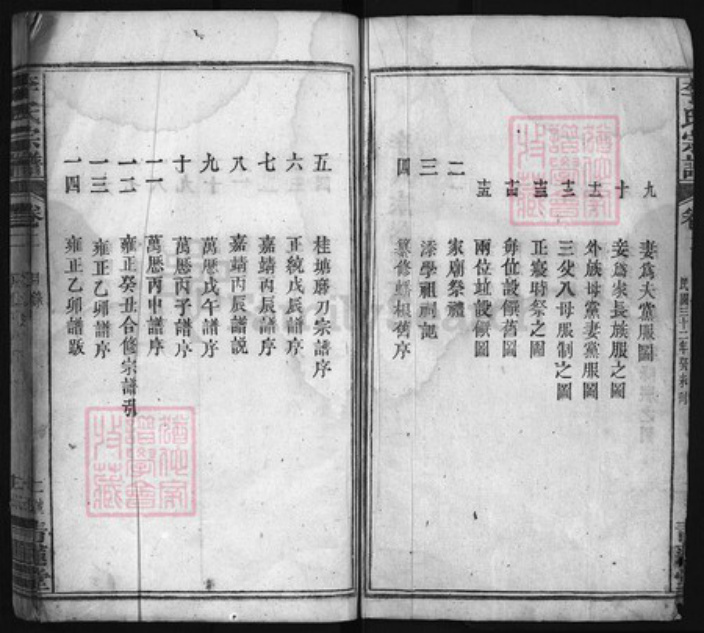 九 妻為夫黨服圖
十 妾為家長族服之圖
十一 外族母黨妻黨服圖
十二 三父八母服制之圖
十三 正寢時祭之圖
十四 每位設饌舊圖
十五 兩位並設饌圖
二 家廟祭禮
三 添學祖祠記
四 纂修蟠根舊序
五 桂塘磨刀宗譜序
六 正統戊辰譜序
七 嘉靖丙辰譜序
八 嘉靖丙辰譜說
九 萬歷戊午譜序
十 萬歷丙子譜序
一一 萬歷丙申譜序
一二 雍正癸丑合修宗譜引
一三 雍正乙卯譜序
一四 雍正乙卯譜跋
李氏宗譜
卷
民國三十二年癸未
青蓮堂